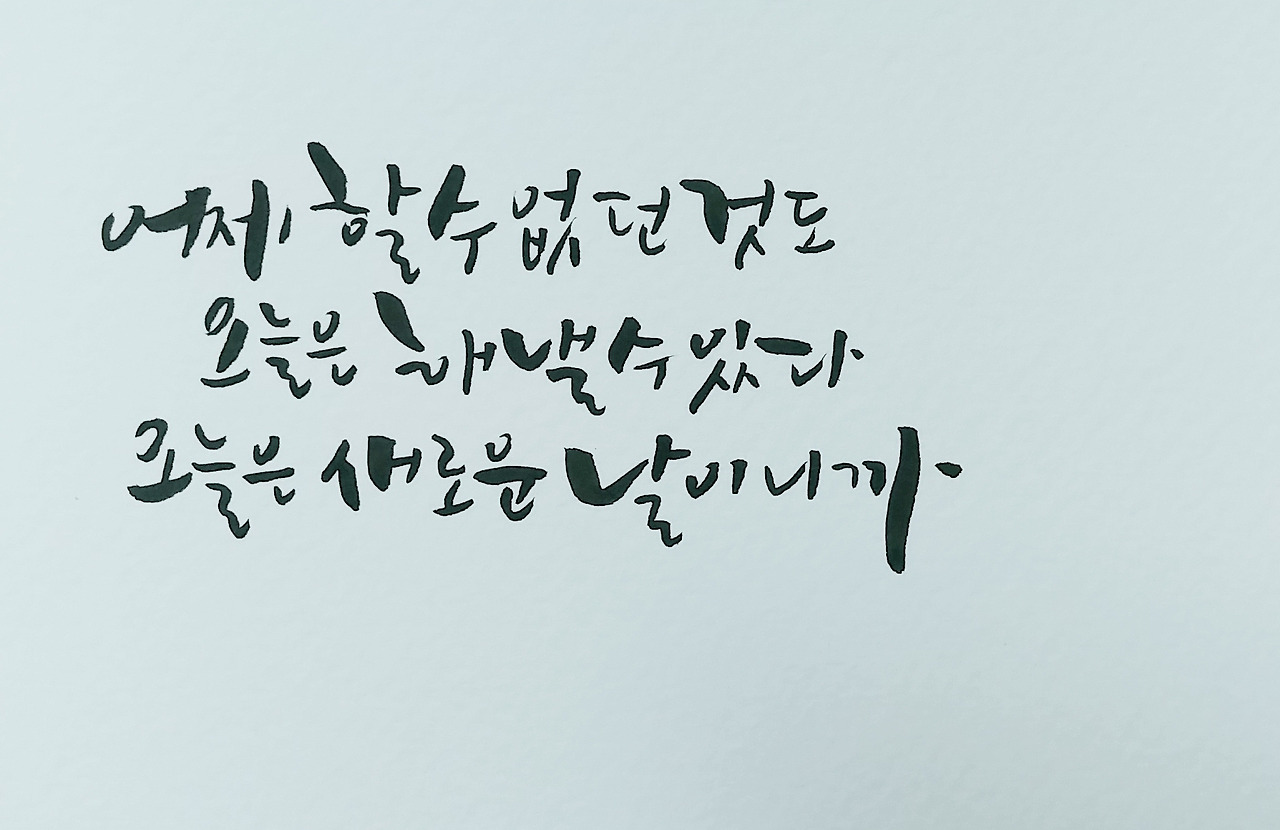 어제 할 수 없던 것도
오늘은 해낼 수 있다
오늘은 새로운 날이니까.